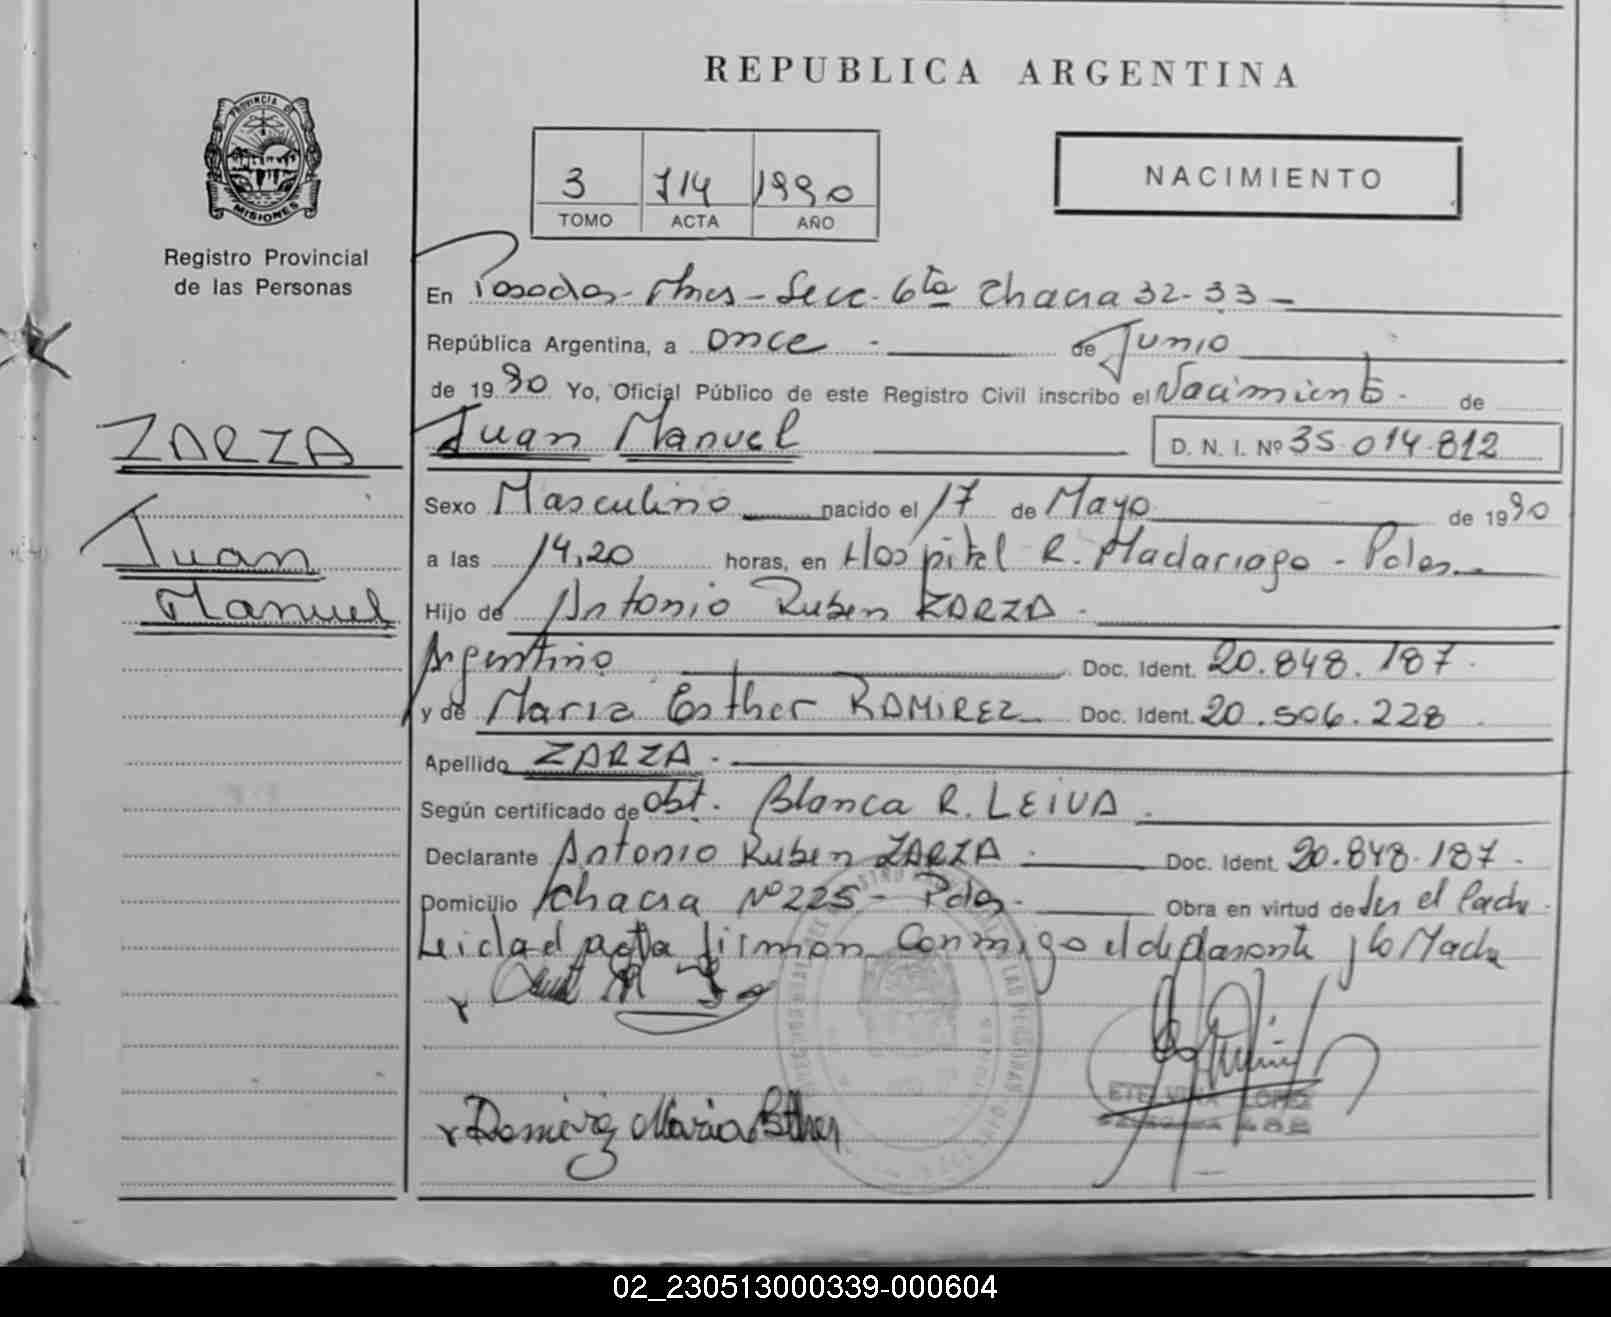 REPUBLICA ARGENTINA
PROVINCIA DE
MISIONES
Registro Provincial
de las Personas
3 714 1990
TOMO ACTA AÑO
NACIMIENTO
En Posadas - Mnes - Secc. 6ta Chacra 32-33 -
República Argentina, a once de Junio
de 1990 Yo, Oficial Público de este Registro Civil inscribo el Nacimiento de
ZARZA
Juan Manuel D. N. I. Nº 35.014.812
Sexo Masculino nacido el 17 de Mayo de 1990
Juan
a las 14,20 horas, en Hospital R. Madariaga - Pdas.
Manuel
Hijo de Antonio Ruben ZARZA.
Argentino Doc. Ident. 20.848.187.
y de Maria Esther RAMIREZ Doc. Ident. 20.506.228
Apellido ZARZA.
Según certificado de obt. Blanca R. LEIVA.
Declarante Antonio Ruben ZARZA Doc. Ident. 20.848.187.
Domicilio Chacra Nº 225 - Pdas. Obra en virtud de ser el Padre.
Leida el acta firman conmigo el declarante y la Madre
Ramirez Maria Esther
ETELVINA LOPEZ
02_230513000339-000604